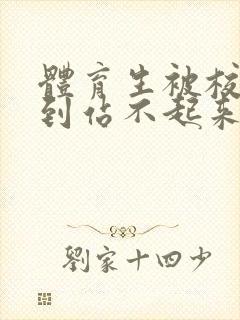 體育生被校
到佔不起來
劉家十四少